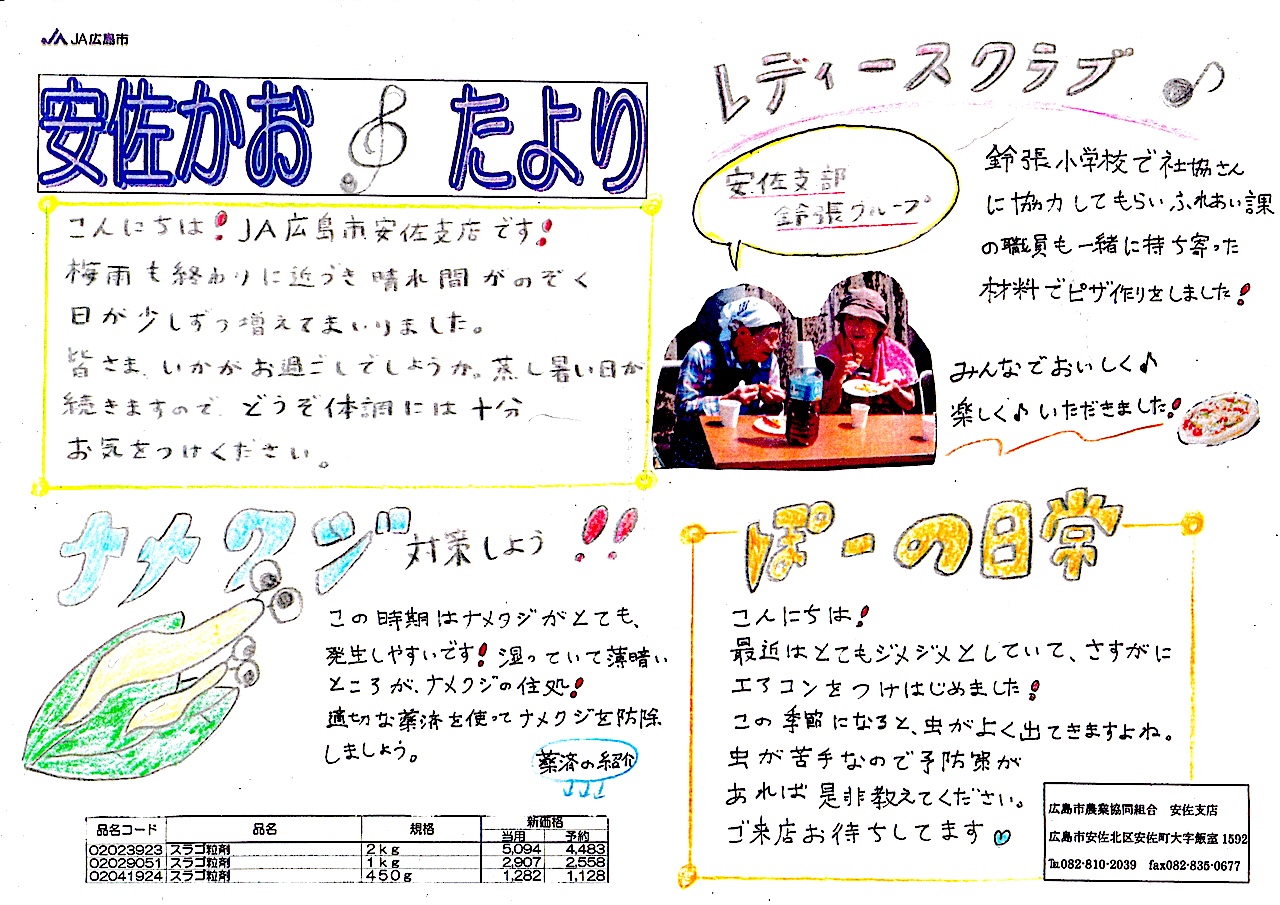 JA広島市
安佐かお たより
こんにちは！JA広島市安佐支店です！
梅雨も終わりに近づき晴れ間がのぞく
日が少しずつ増えてまいりました。
皆さま、いかがお過ごしでしょうか。蒸し暑い日が
続きますので、どうぞ体調には十分
お気をつけください。
レディースクラブ♪
安佐支部
鈴張グループ
鈴張小学校で社協さん
に協力してもらいふれあい課
の職員も一緒に持ち寄った
材料でピザ作りをしました！
みんなでおいしく♪
楽しく♪いただきました！
ナメクジ対策しよう!!
この時期はナメクジがとても、
発生しやすいです！湿っていて薄暗い
ところが、ナメクジの住処！
適切な薬済を使ってナメクジを防除
しましょう。
薬済の紹介
品名コード 品名 規格 新価格
当用 予約
02023923 スラゴ粒剤 2kg 5,094 4,483
02029051 スラゴ粒剤 1kg 2,907 2,558
02041924 スラゴ粒剤 450g 1,282 1,128
ぽーの日常
こんにちは！
最近はとてもジメジメとしていて、さすがに
エアコンをつけはじめました！
この季節になると、虫がよく出てきますよね。
虫が苦手なので予防策が
あれば是非教えてください。
ご来店お待ちしてます♡
広島市農業協同組合 安佐支店
広島市安佐北区安佐町大字飯室1592
℡082-810-2039 fax082-835-0677